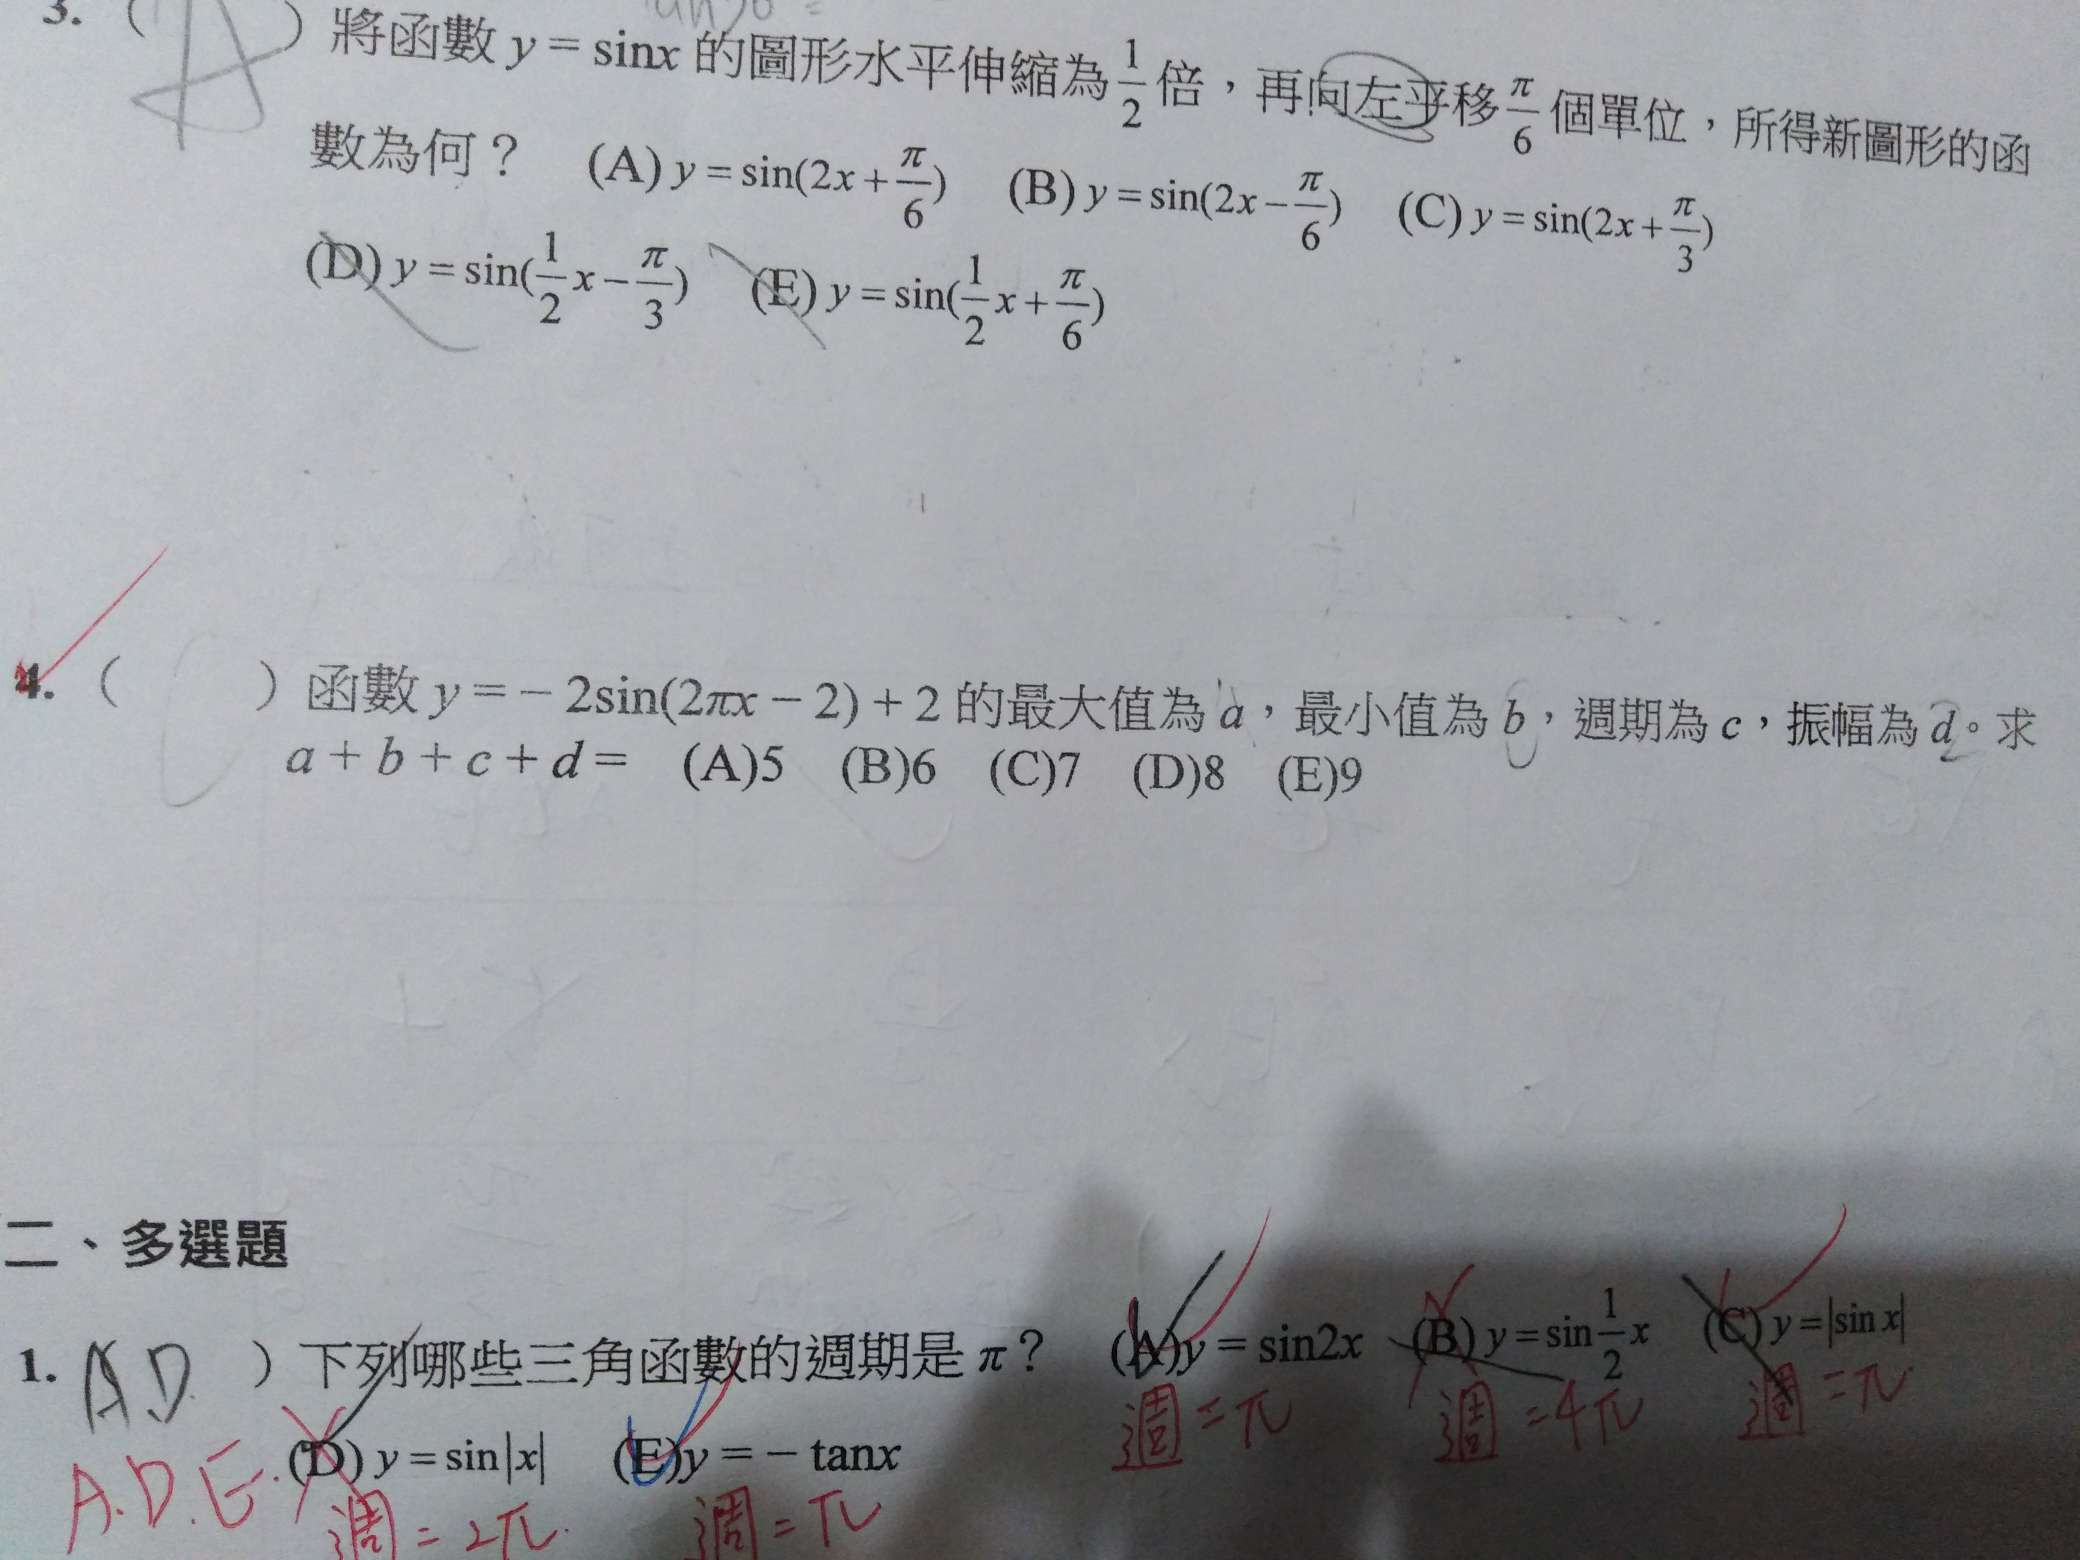 3. ( A ) 將函數 y = sinx 的圖形水平伸縮為 1/2 倍，再向左平移 π/6 個單位，所得新圖形的函
數為何？ (A) y = sin(2x + π/6) (B) y = sin(2x − π/6) (C) y = sin(2x + π/3)
(D) y = sin(1/2 x − π/3) (E) y = sin(1/2 x + π/6)
4. ( C ) 函數 y = − 2sin(2πx − 2) + 2 的最大值為 a，最小值為 b，週期為 c，振幅為 d。求
a + b + c + d = (A)5 (B)6 (C)7 (D)8 (E)9
二、多選題
1. AD ) 下列哪些三角函數的週期是 π？ (A) y = sin2x (B) y = sin 1/2 x (C) y = |sin x|
週 = π 週 = 4π 週 = π
A.D.E. (D) y = sin|x| (E) y = − tanx
週 = 2π. 週 = π